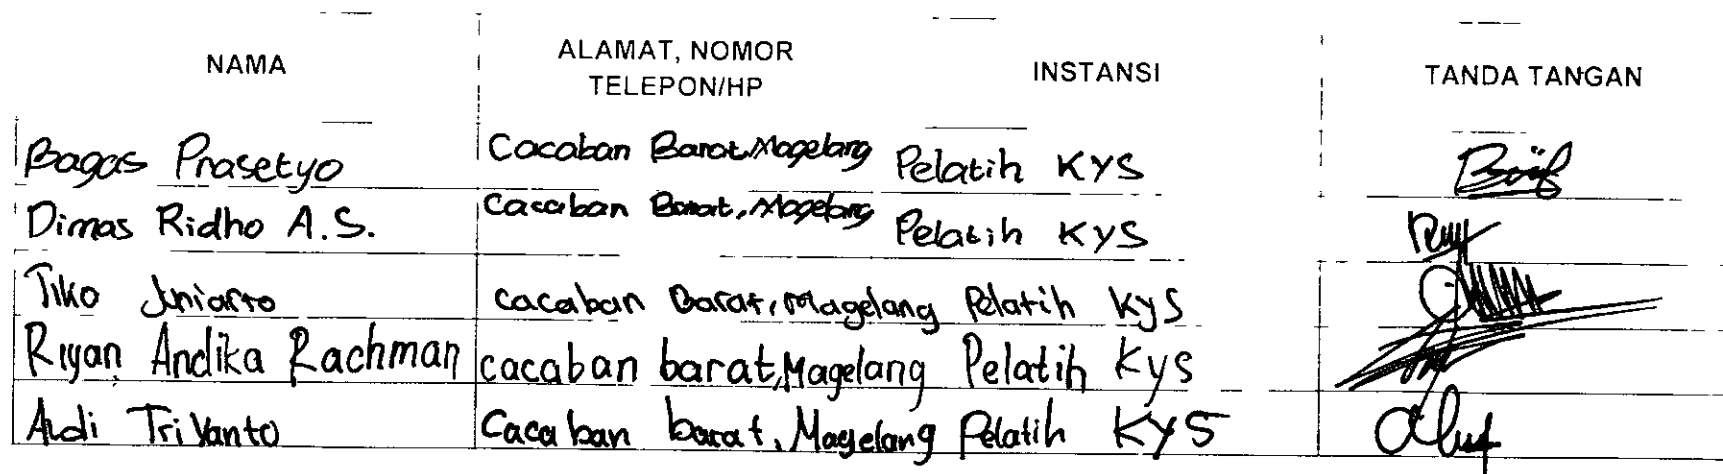 NAMA ALAMAT, NOMOR TELEPON/HP INSTANSI TANDA TANGAN
Bagas Prasetyo Cacaban Barat, Magelang Pelatih KYS
Dimas Ridho A.S. Cacaban Barat, Magelang Pelatih KYS
Tiko Juniarto cacaban Barat, Magelang Pelatih KyS
Riyan Andika Rachman cacaban barat, Magelang Pelatih Kys
Aldi Tri Yanto Cacaban barat, Magelang Pelatih KYS